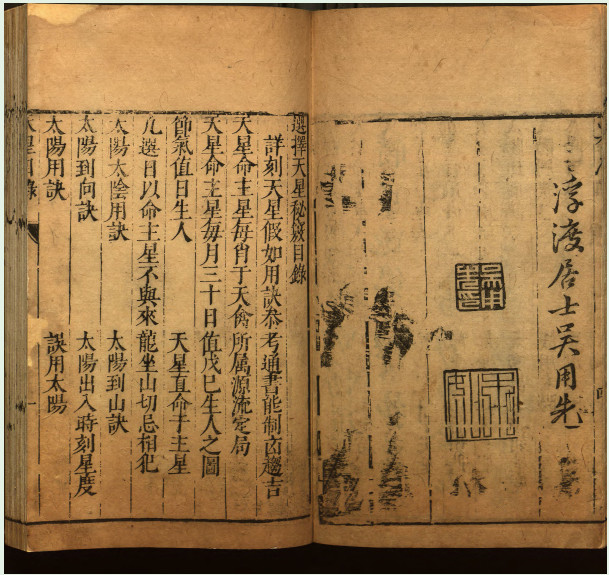 浮渡居士吳用先
選擇天星秘竅目錄
詳刻天星假如用訣叅考通書能制凶趨吉
天星命主星每肖于天禽所属源流定局
天星命主星每月三十日值戊巳生人之圖
節氣值日生人 天星直命于主星
凡選日以命主星不與來龍坐山切忌相犯
太陽太陰用訣 太陽到山訣
太陽到向訣 太陽出入時刻星度
太陽用訣 誤用太陽
星目錄 一